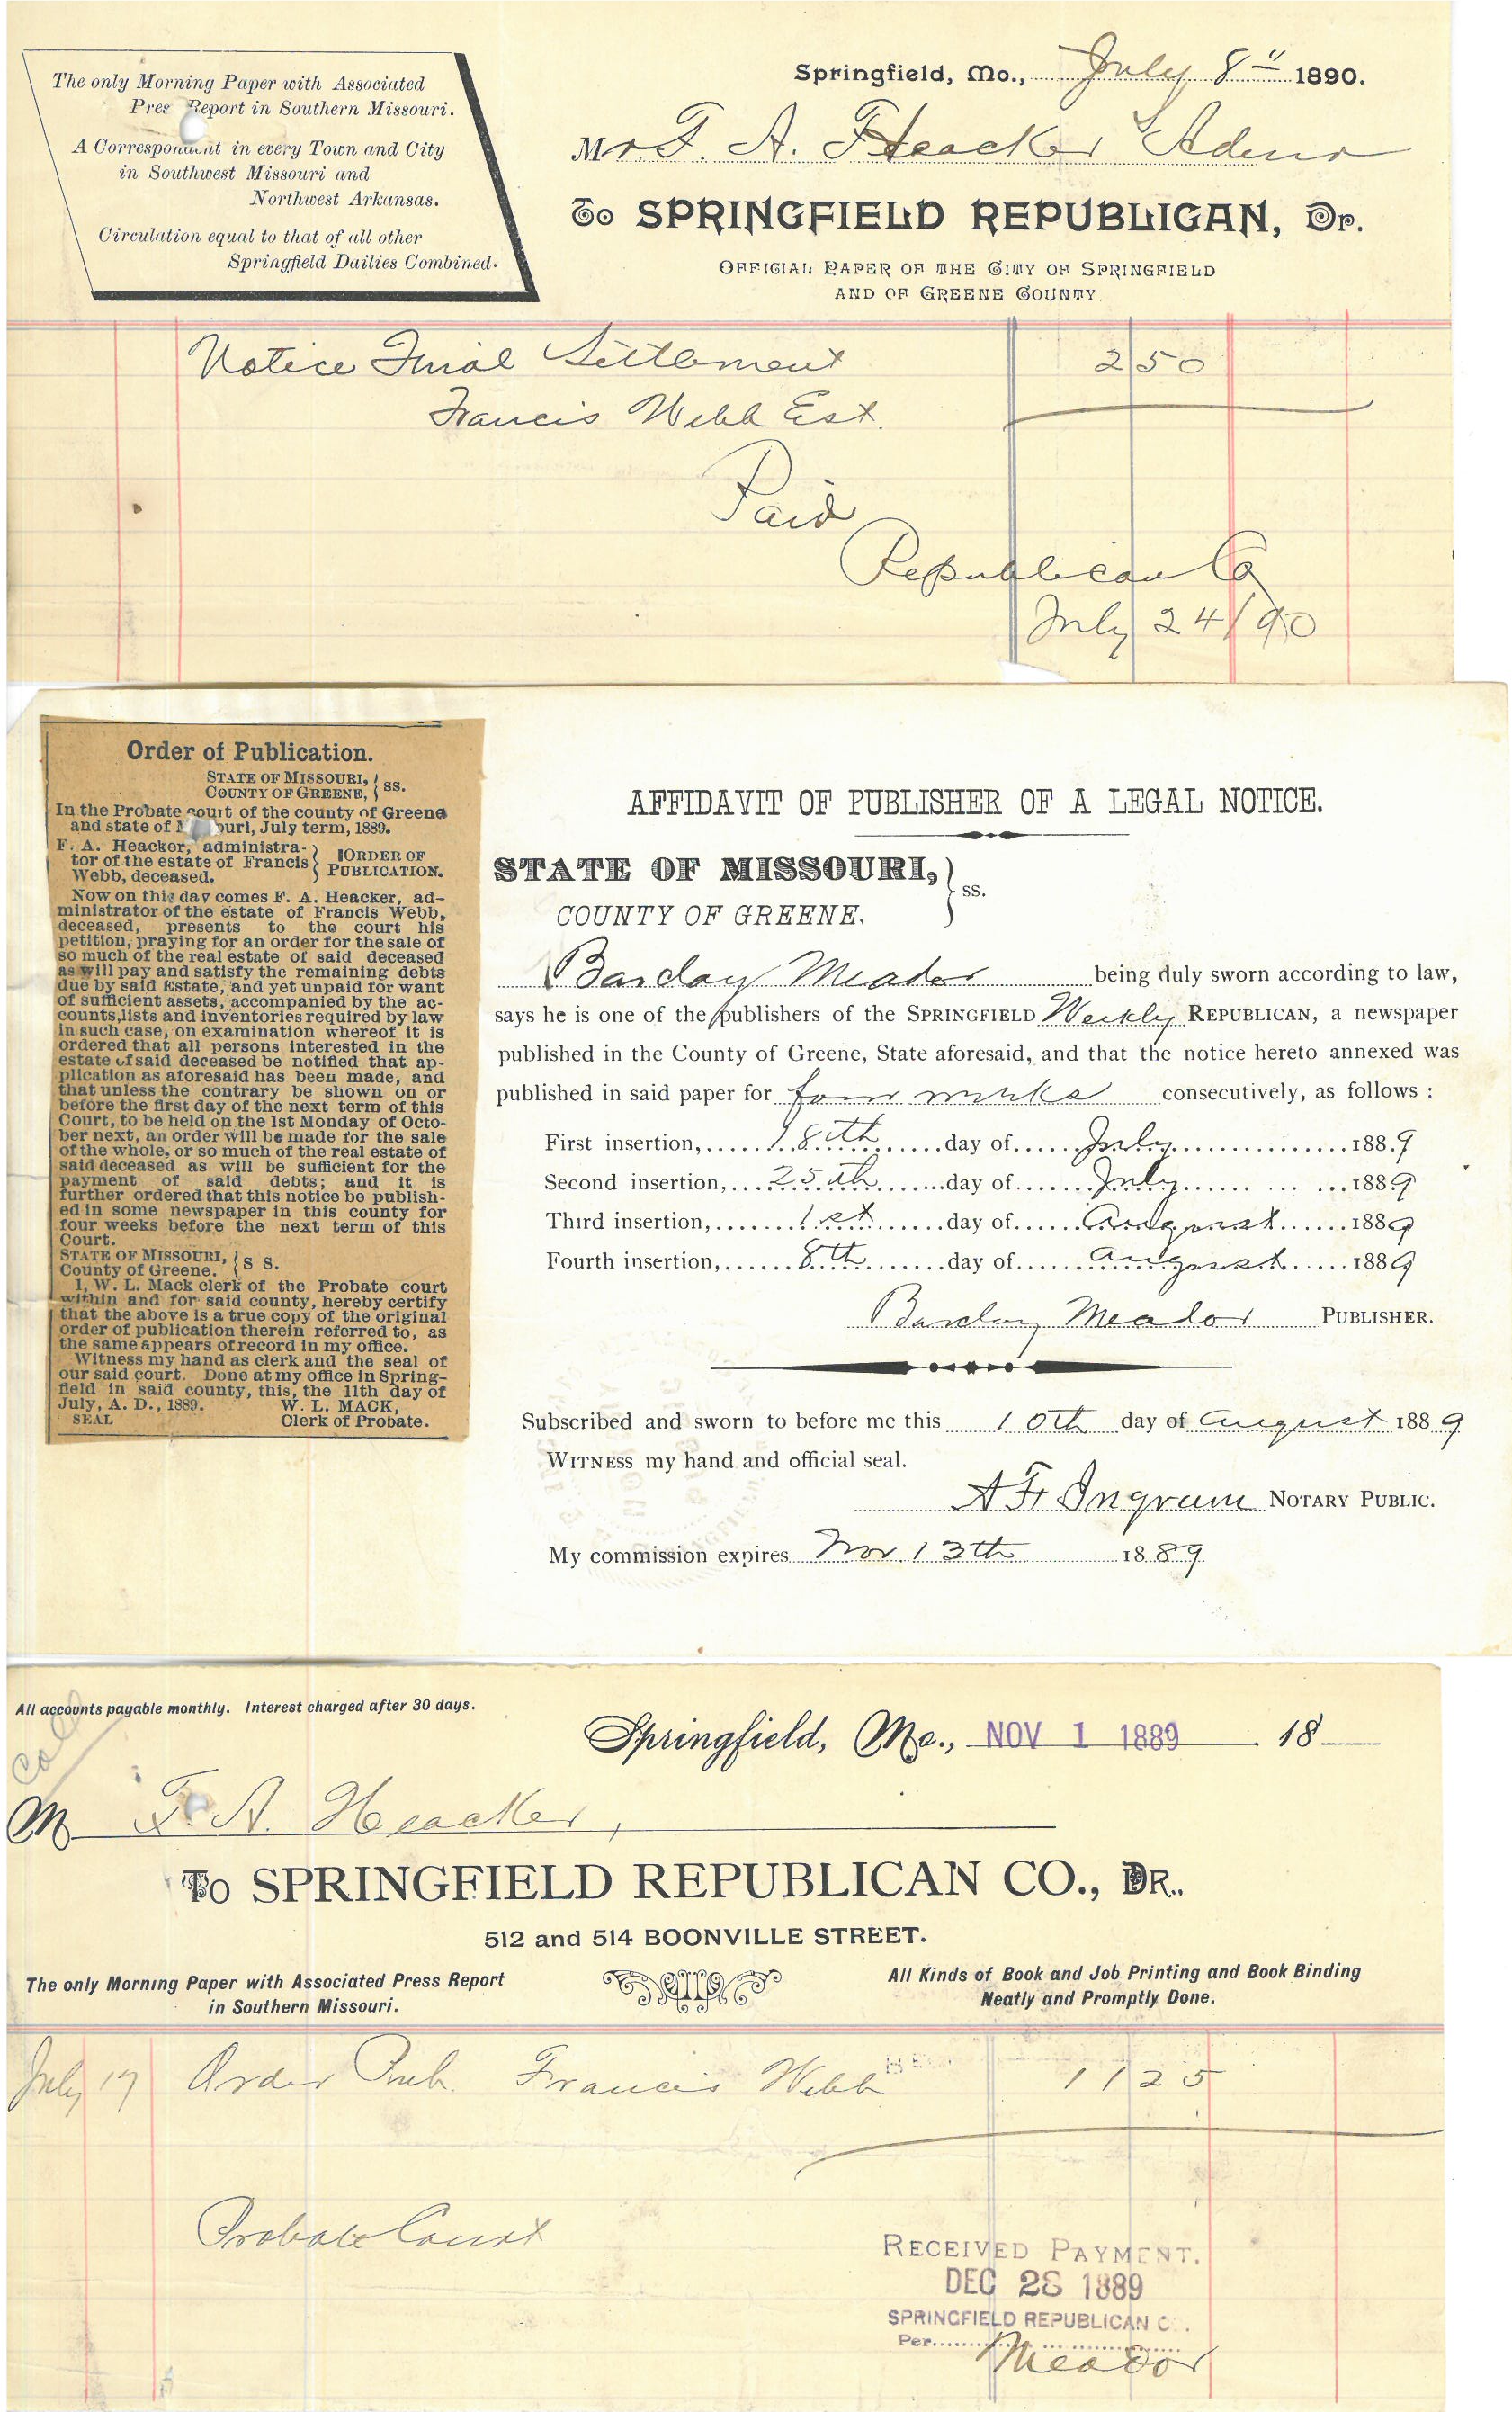 The only Morning Paper with Associated
Press Report in Southern Missouri.
A Correspondent in every Town and City
in Southwest Missouri and
Northwest Arkansas.
Circulation equal to that of all other
Springfield Dailies Combined.
Springfield, Mo., July 8" 1890.
Mr. F. A. Heacker Admr
To SPRINGFIELD REPUBLICAN, Dr.
OFFICIAL PAPER OF THE CITY OF SPRINGFIELD
AND OF GREENE COUNTY.
Notice Final Settlement 2 50
Francis Webb Est.
Paid
Republican Co
July 24/90
Order of Publication.
STATE OF MISSOURI, } ss.
COUNTY OF GREENE,
In the Probate court of the county of Greene
and state of Missouri, July term, 1889.
F. A. Heacker, administra-
tor of the estate of Francis
Webb, deceased.
ORDER OF
PUBLICATION.
Now on this day comes F. A. Heacker, ad-
ministrator of the estate of Francis Webb,
deceased, presents to the court his
petition, praying for an order for the sale of
so much of the real estate of said deceased
as will pay and satisfy the remaining debts
due by said Estate, and yet unpaid for want
of sufficient assets, accompanied by the ac-
counts, lists and inventories required by law
in such case, on examination whereof it is
ordered that all persons interested in the
estate of said deceased be notified that ap-
plication as aforesaid has been made, and
that unless the contrary be shown on or
before the first day of the next term of this
Court, to be held on the 1st Monday of Octo-
ber next, an order will be made for the sale
of the whole, or so much of the real estate of
said deceased as will be sufficient for the
payment of said debts; and it is
further ordered that this notice be publish-
ed in some newspaper in this county for
four weeks before the next term of this
Court.
STATE OF MISSOURI, } S S.
County of Greene.
I, W. L. Mack clerk of the Probate court
within and for said county, hereby certify
that the above is a true copy of the original
order of publication therein referred to, as
the same appears of record in my office.
Witness my hand as clerk and the seal of
our said court. Done at my office in Spring-
field in said county, this, the 11th day of
July, A. D., 1889. W. L. MACK,
SEAL Clerk of Probate.
AFFIDAVIT OF PUBLISHER OF A LEGAL NOTICE.
STATE OF MISSOURI, } ss.
COUNTY OF GREENE.
Barclay Meador being duly sworn according to law,
says he is one of the publishers of the SPRINGFIELD Weekly REPUBLICAN, a newspaper
published in the County of Greene, State aforesaid, and that the notice hereto annexed was
published in said paper for four weeks consecutively, as follows :
First insertion, 18th day of July 1889
Second insertion, 25th day of July 1889
Third insertion, 1st day of August 1889
Fourth insertion, 8th day of August 1889
Barclay Meador PUBLISHER.
Subscribed and sworn to before me this 10th day of August 1889
WITNESS my hand and official seal.
A F Ingram NOTARY PUBLIC.
My commission expires Nov 13th 1889
All accounts payable monthly. Interest charged after 30 days.
Springfield, Mo., NOV 1 1889 18
M F. A. Heacker,
To SPRINGFIELD REPUBLICAN CO., DR.,
512 and 514 BOONVILLE STREET.
The only Morning Paper with Associated Press Report
in Southern Missouri.
All Kinds of Book and Job Printing and Book Binding
Neatly and Promptly Done.
July 17 Order Pub. Francis Webb 11 25
Probate Court
RECEIVED PAYMENT.
DEC 28 1889
SPRINGFIELD REPUBLICAN C.
Per Meador